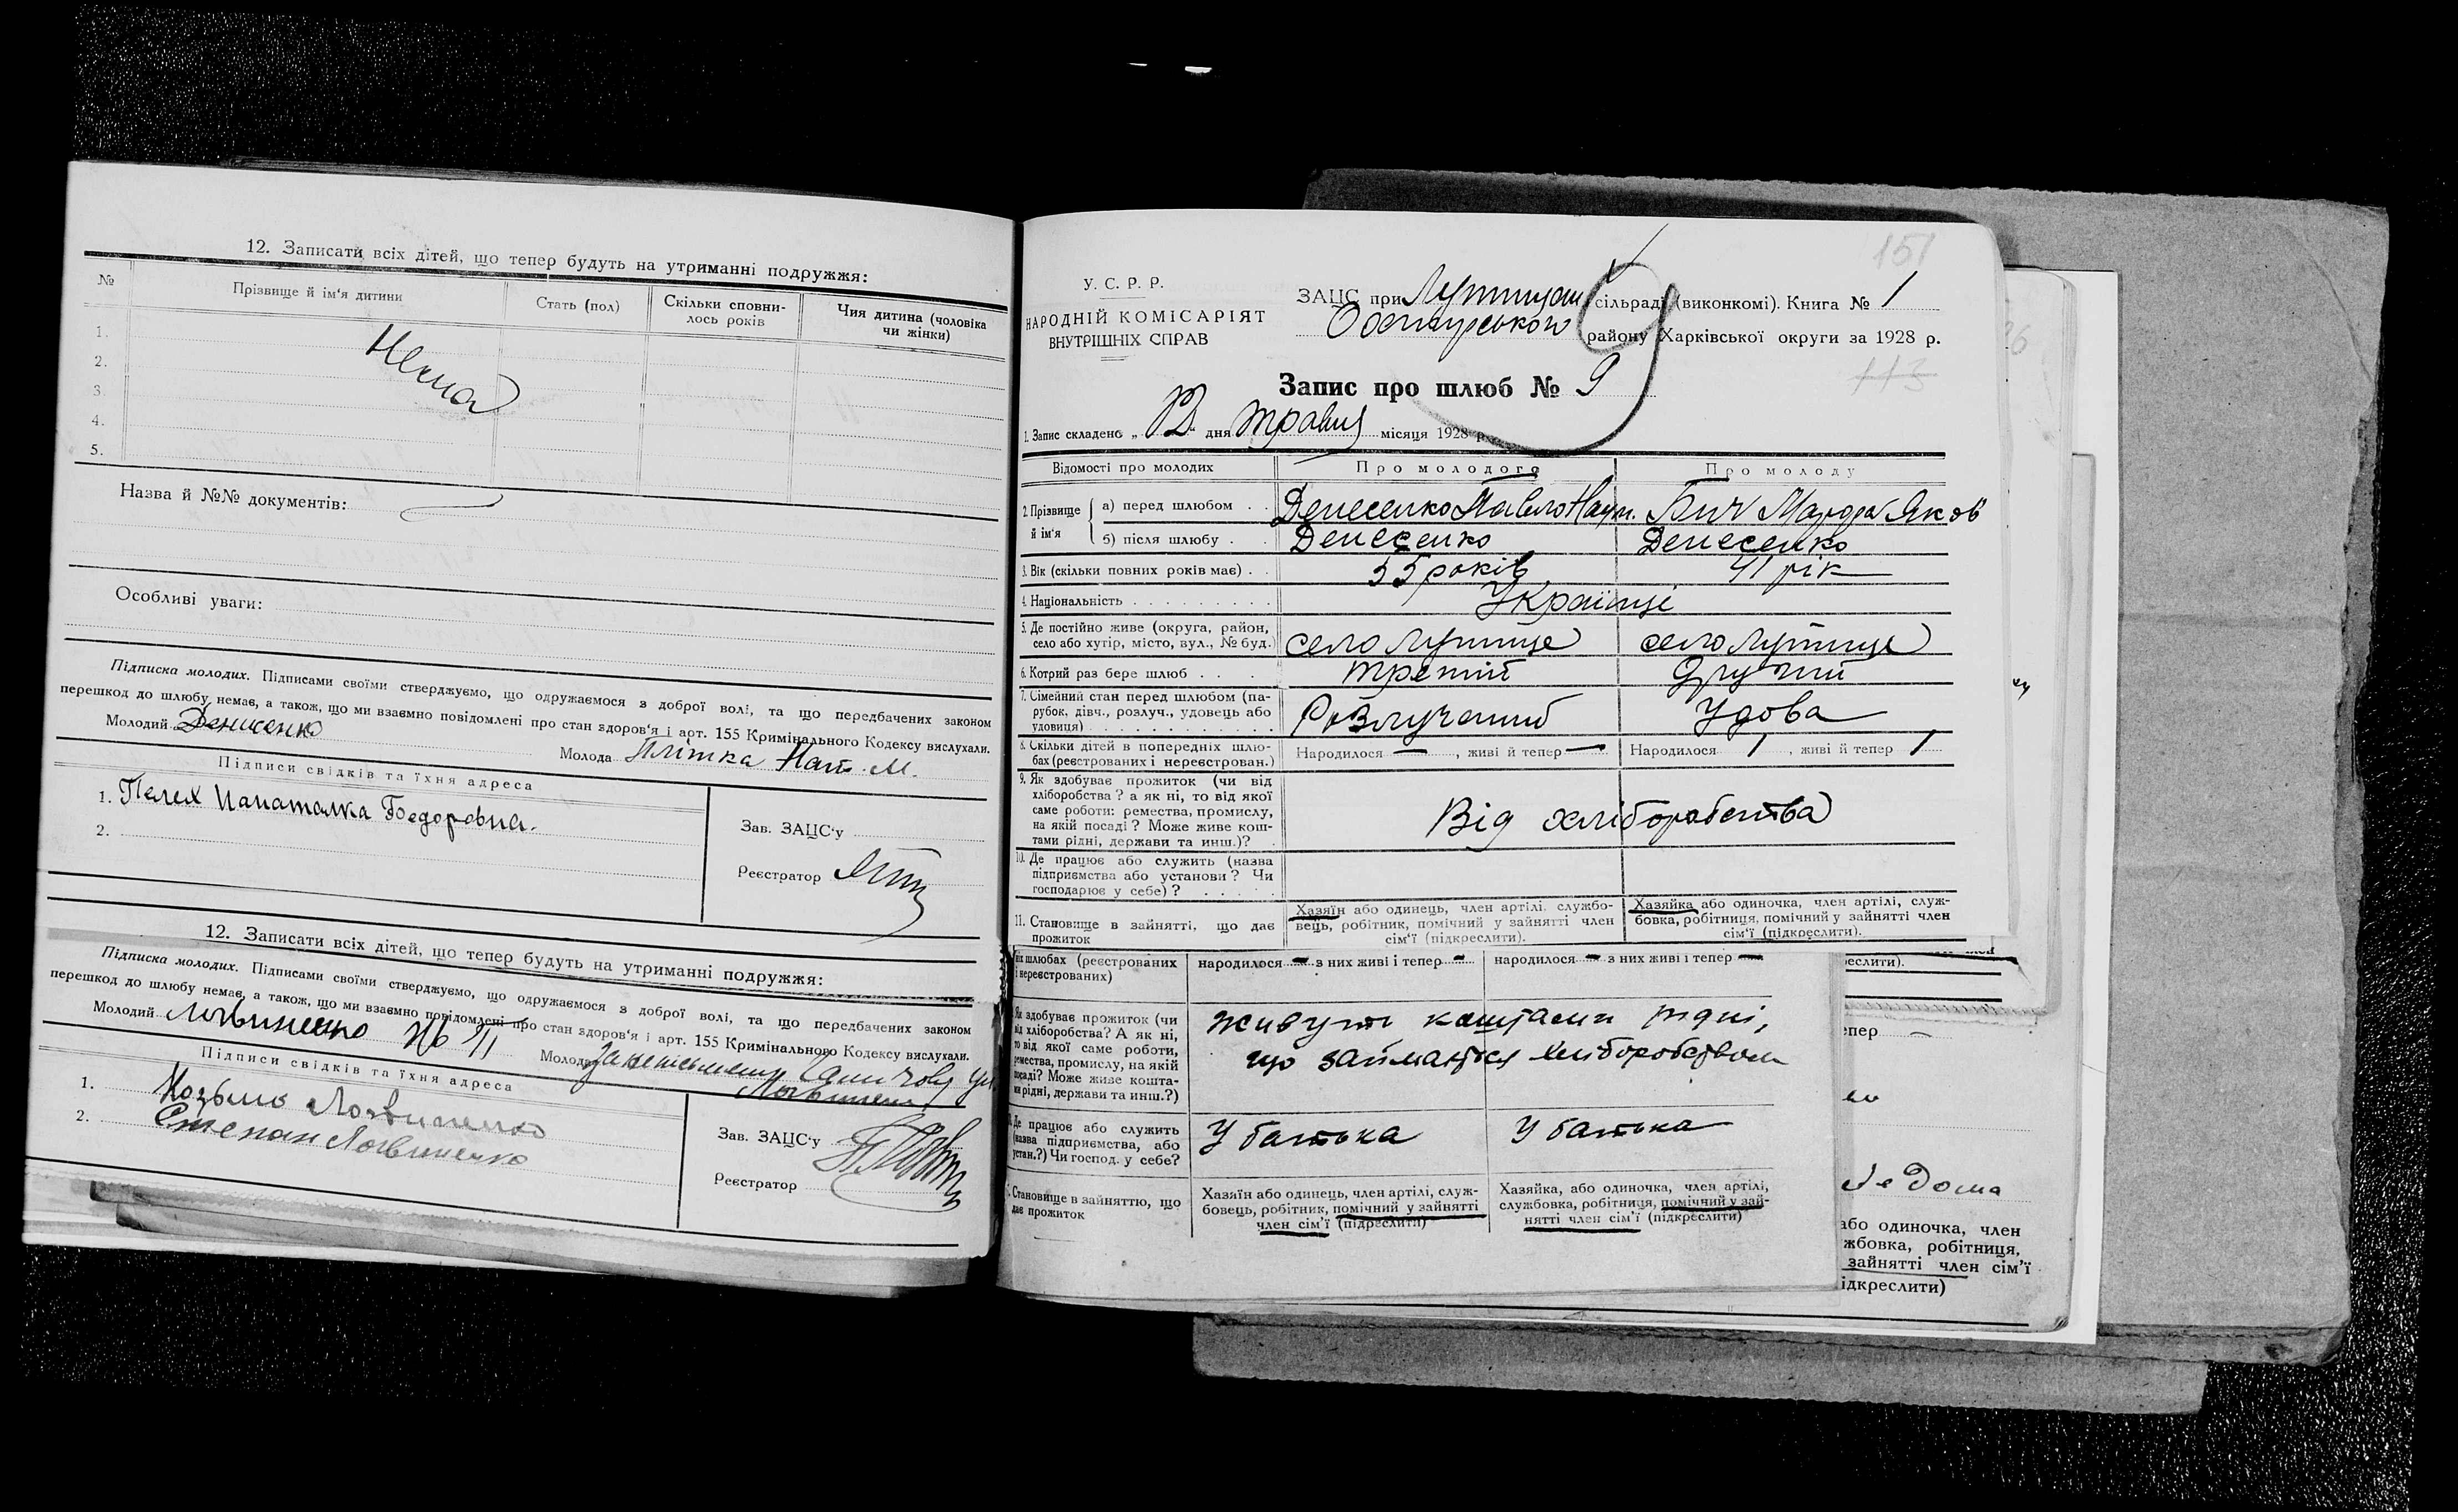 12. Записати всіх дітей, що тепер будуть на утриманні подружжя:
№ Прізвище й ім'я дитини Стать (пол) Скільки сповнилось років Чия дитина (чоловіка чи жінки)
1.
2.
3.
4.
5.
Нема
Назва й №№ документів:
Особливі уваги:
Підписка молодих. Підписами своїми стверджуємо, що одружаємося з доброї волі, та що передбачених законом
перешкод до шлюбу немає, а також, що ми взаємно повідомлені про стан здоров'я і арт. 155 Кримінального Кодексу вислухали.
Молодий Денисенко Молода
Підписи свідків та їхня адреса
1. Пелех Федоровна.
2.
Зав. ЗАЦС'у
Реєстратор
12. Записати всіх дітей, що тепер будуть на утриманні подружжя:
Підписка молодих. Підписами своїми стверджуємо, що одружаємося з доброї волі, та що передбачених законом
перешкод до шлюбу немає, а також, що ми взаємно повідомлені про стан здоров'я і арт. 155 Кримінального Кодексу вислухали.
Молодий Логвиненко Молода
Підписи свідків та їхня адреса
1. Козьма Логвиненко
2. Степан Логвиненко
Зав. ЗАЦС'у
Реєстратор
151
У. С. Р. Р.
НАРОДНІЙ КОМІСАРІЯТ
ВНУТРІШНІХ СПРАВ
ЗАЦС при сільраді (виконкомі). Книга № 1
району Харківської округи за 1928 р.
113
Запис про шлюб № 9
1. Запис складено „12“ дня травня місяця 1928 р.
Відомості про молодих Про молодого Про молоду
2. Прізвище й ім'я
а) перед шлюбом . . Денесенко Павло Наум. Бич Марфа Яков
б) після шлюбу . Денесенко Денесенко
3. Вік (скільки повних років має) . . 55 років 41 рік
4. Національність . . . . . . . . . Українці
5. Де постійно живе (округа, район,
село або хутір, місто, вул., № буд.) село Лутище село Лутище
6. Котрий раз бере шлюб . . третій Другий
7. Сімейний стан перед шлюбом (парубок, дівч., розлуч., удовець або
удовиця) . . . . Розлучений Удова
8. Скільки дітей в попередніх шлюбах (реєстрованих і нереєстрован.) Народилося — , живі й тепер — Народилося 1 , живі й тепер 1
9. Як здобуває прожиток (чи від
хліборобства? а як ні, то від якої
саме роботи: ремества, промислу,
на якій посаді? Може живе коштами рідні, держави та инш.)?
Від хліборобства
10. Де працює або служить (назва
підприємства або установи? Чи
господарює у себе)? . . . . .
11. Становище в зайнятті, що дає
прожиток
Хазяїн або одинець, член артілі, службовець, робітник, помічний у зайнятті член
сім'ї (підкреслити).
Хазяйка або одиночка, член артілі, службовка, робітниця, помічний у зайнятті член
сім'ї (підкреслити).
них шлюбах (реєстрованих
і нереєстрованих)
народилося — з них живі і тепер — народилося — з них живі і тепер —
Як здобуває прожиток (чи
від хліборобства? А як ні,
то від якої саме роботи,
ремества, промислу, на якій
посаді? Може живе коштами рідні, держави та инш.?)
живуть коштами рідні,
що займаються хліборобством
Де працює або служить
(назва підприємства, або
устан.?) Чи господ. у себе?
У батька У батька
Становище в зайняттю, що
дає прожиток
Хазяїн або одинець, член артілі, службовець, робітник, помічний у зайнятті
член сім'ї (підреслити)
Хазяйка, або одиночка, член артілі,
службовка, робітниця, помічний у зайнятті член сім'ї (підкреслити)
еслити).
епер —
Дома
або одиночка, член
жбовка, робітниця,
зайнятті член сім'ї
ідкреслити)